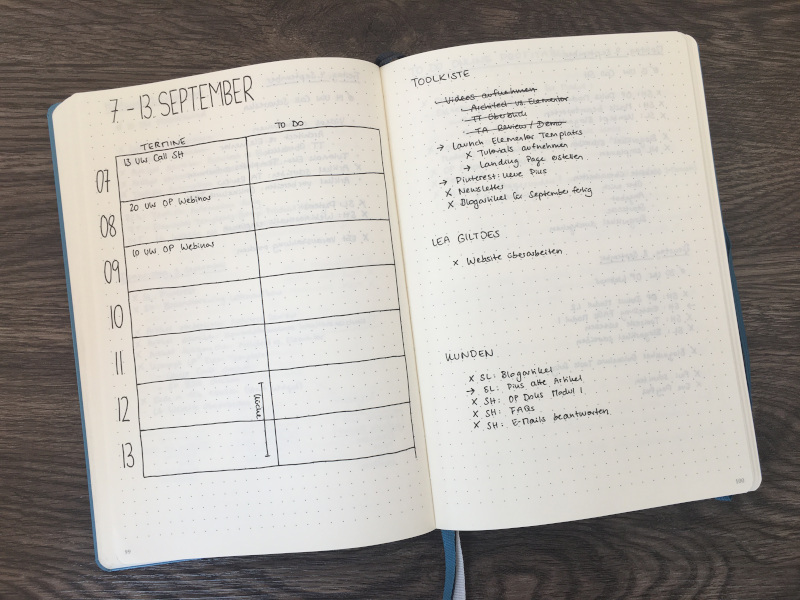 7. - 13. SEPTEMBER
TERMINE
TO DO
07
13 Uhr Call SH
08
20 Uhr OP Webinar
09
10 Uhr OP Webinar
10
11
12
13
TOOLKISTE
- Videos aufnehmen
- Architect vs. Elementor
- TT Überblick
- TA Review / Demo
→ Launch Elementor Templates
x Tutorials aufnehmen
→ Landing Page erstellen
→ Pinterest: neue Pins
x Newsletter
x Blogartikel für September fertig
LEA GILTJES
x Website überarbeiten
KUNDEN
x SL: Blogartikel
→ SL: Pins alte Artikel
x SH: OP Doks Modul 1
x SH: FAQs
x SH: E-Mails beantworten